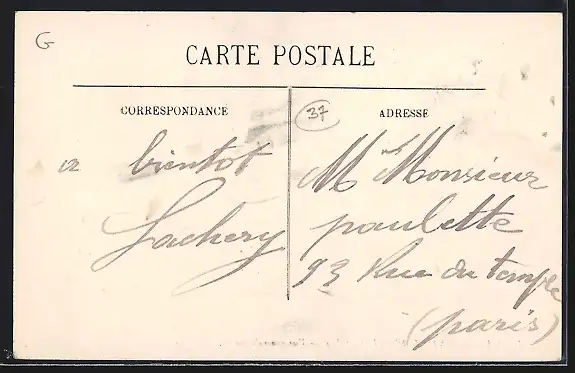 G
CARTE POSTALE
CORRESPONDANCE
37
ADRESSE
a bientot
Lachery
M Monsieur
paulette
93 Rue du temple
(paris)